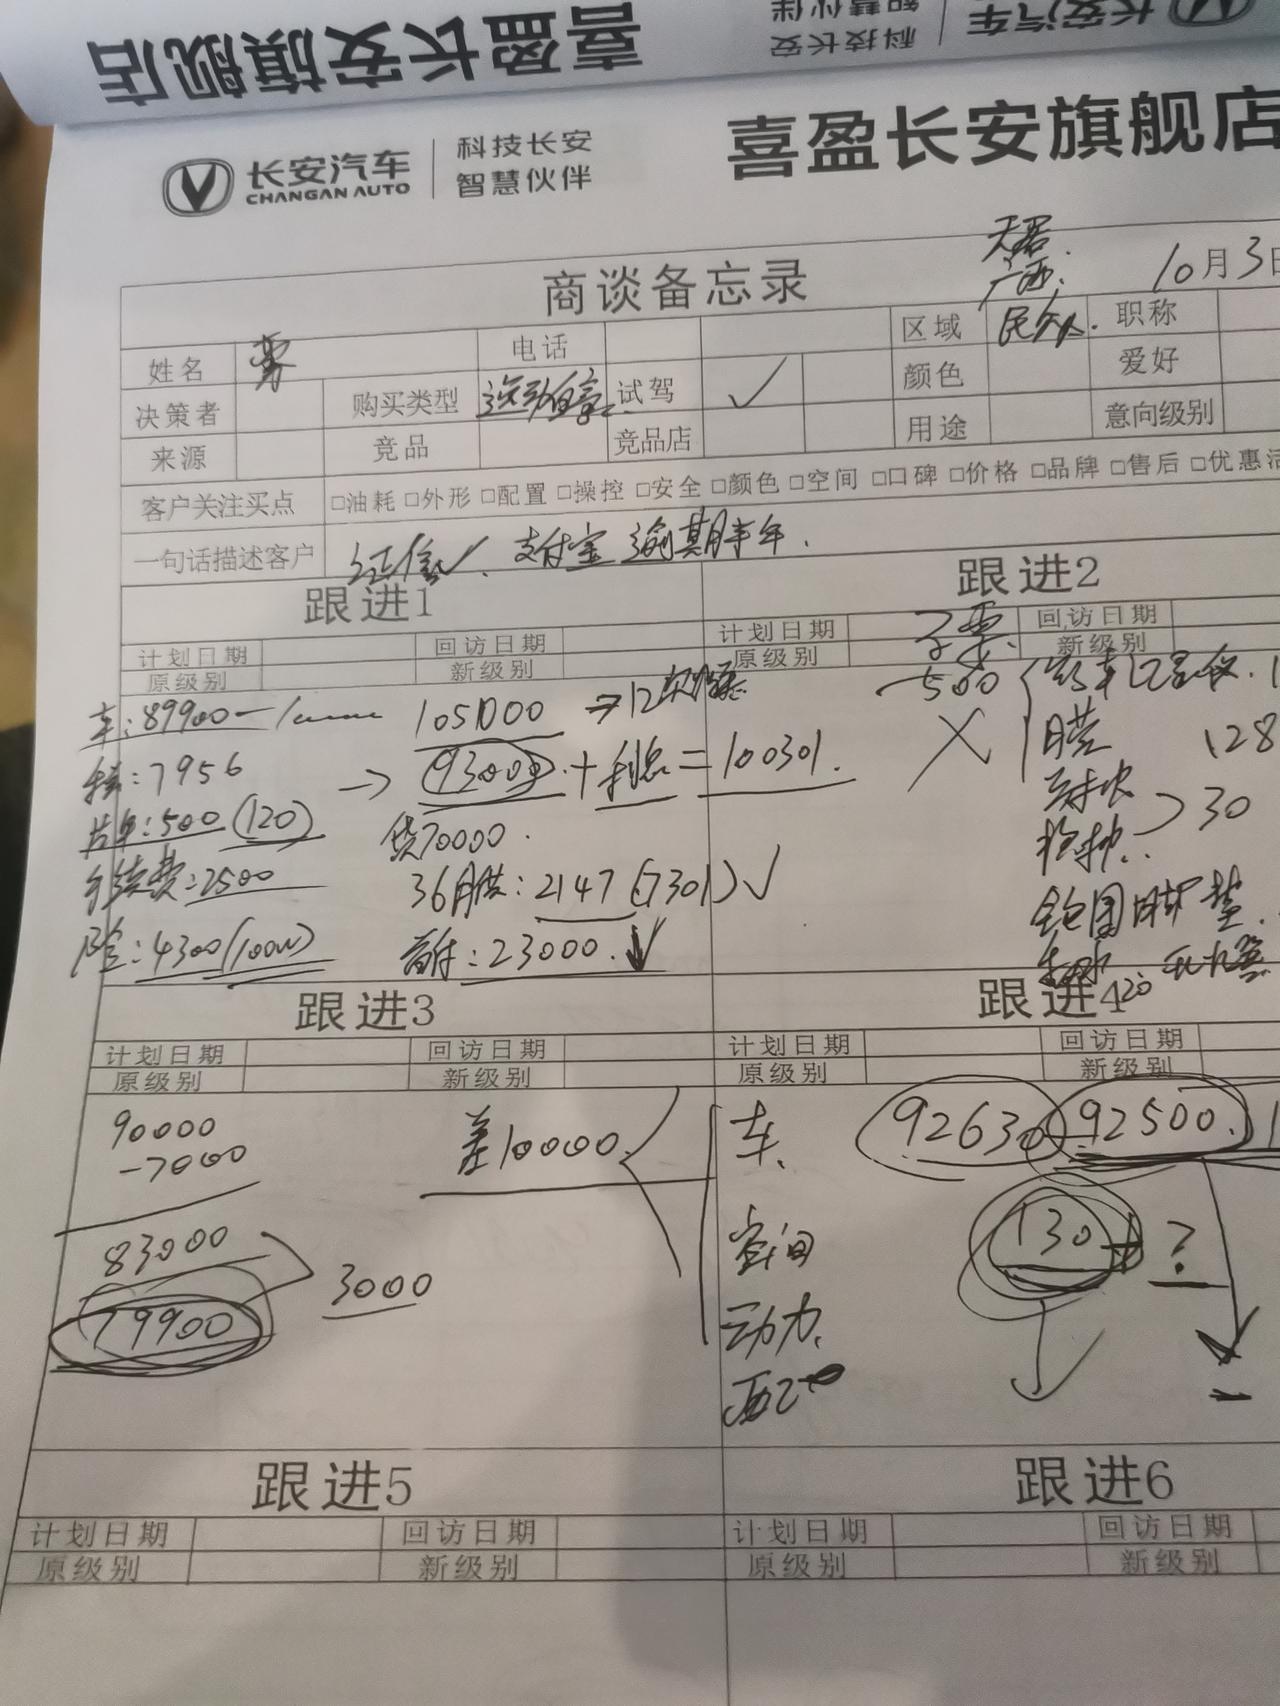 喜盈长安旗舰店
科技长安
智慧伙伴
长安汽车
长安汽车
CHANGAN AUTO
科技长安
智慧伙伴
喜盈长安旗舰店
商谈备忘录
广西.
10月3日
姓名 电话 区域 职称
决策者 购买类型 运动自享 试驾 ✓ 颜色 爱好
来源 竞品 竞品店 用途 意向级别
客户关注买点 □油耗 □外形 □配置 □操控 □安全 □颜色 □空间 □口碑 □价格 □品牌 □售后 □优惠活
一句话描述客户 征信✓. 支付宝 逾期半年.
跟进1
计划日期 回访日期
原级别 新级别
车:89900 105000 → 12次保养
7956 → 93000 + 利息 = 100301.
500 (120) 贷70000.
手续费:2500 36月供: 2147 (7301) ✓
险:4300 (100W) 首付: 23000.
跟进2
计划日期 回访日期
原级别 新级别
500 行车记录仪.
膜 128
30
全包围脚垫.
跟进3
计划日期 回访日期
原级别 新级别
90000
-7000
83000
79900
3000
差10000.
跟进4
计划日期 回访日期
原级别 新级别
车. 92630 92500.
空间 130 ?
动力.
配
跟进5
计划日期 回访日期
原级别 新级别
跟进6
计划日期 回访日期
原级别 新级别